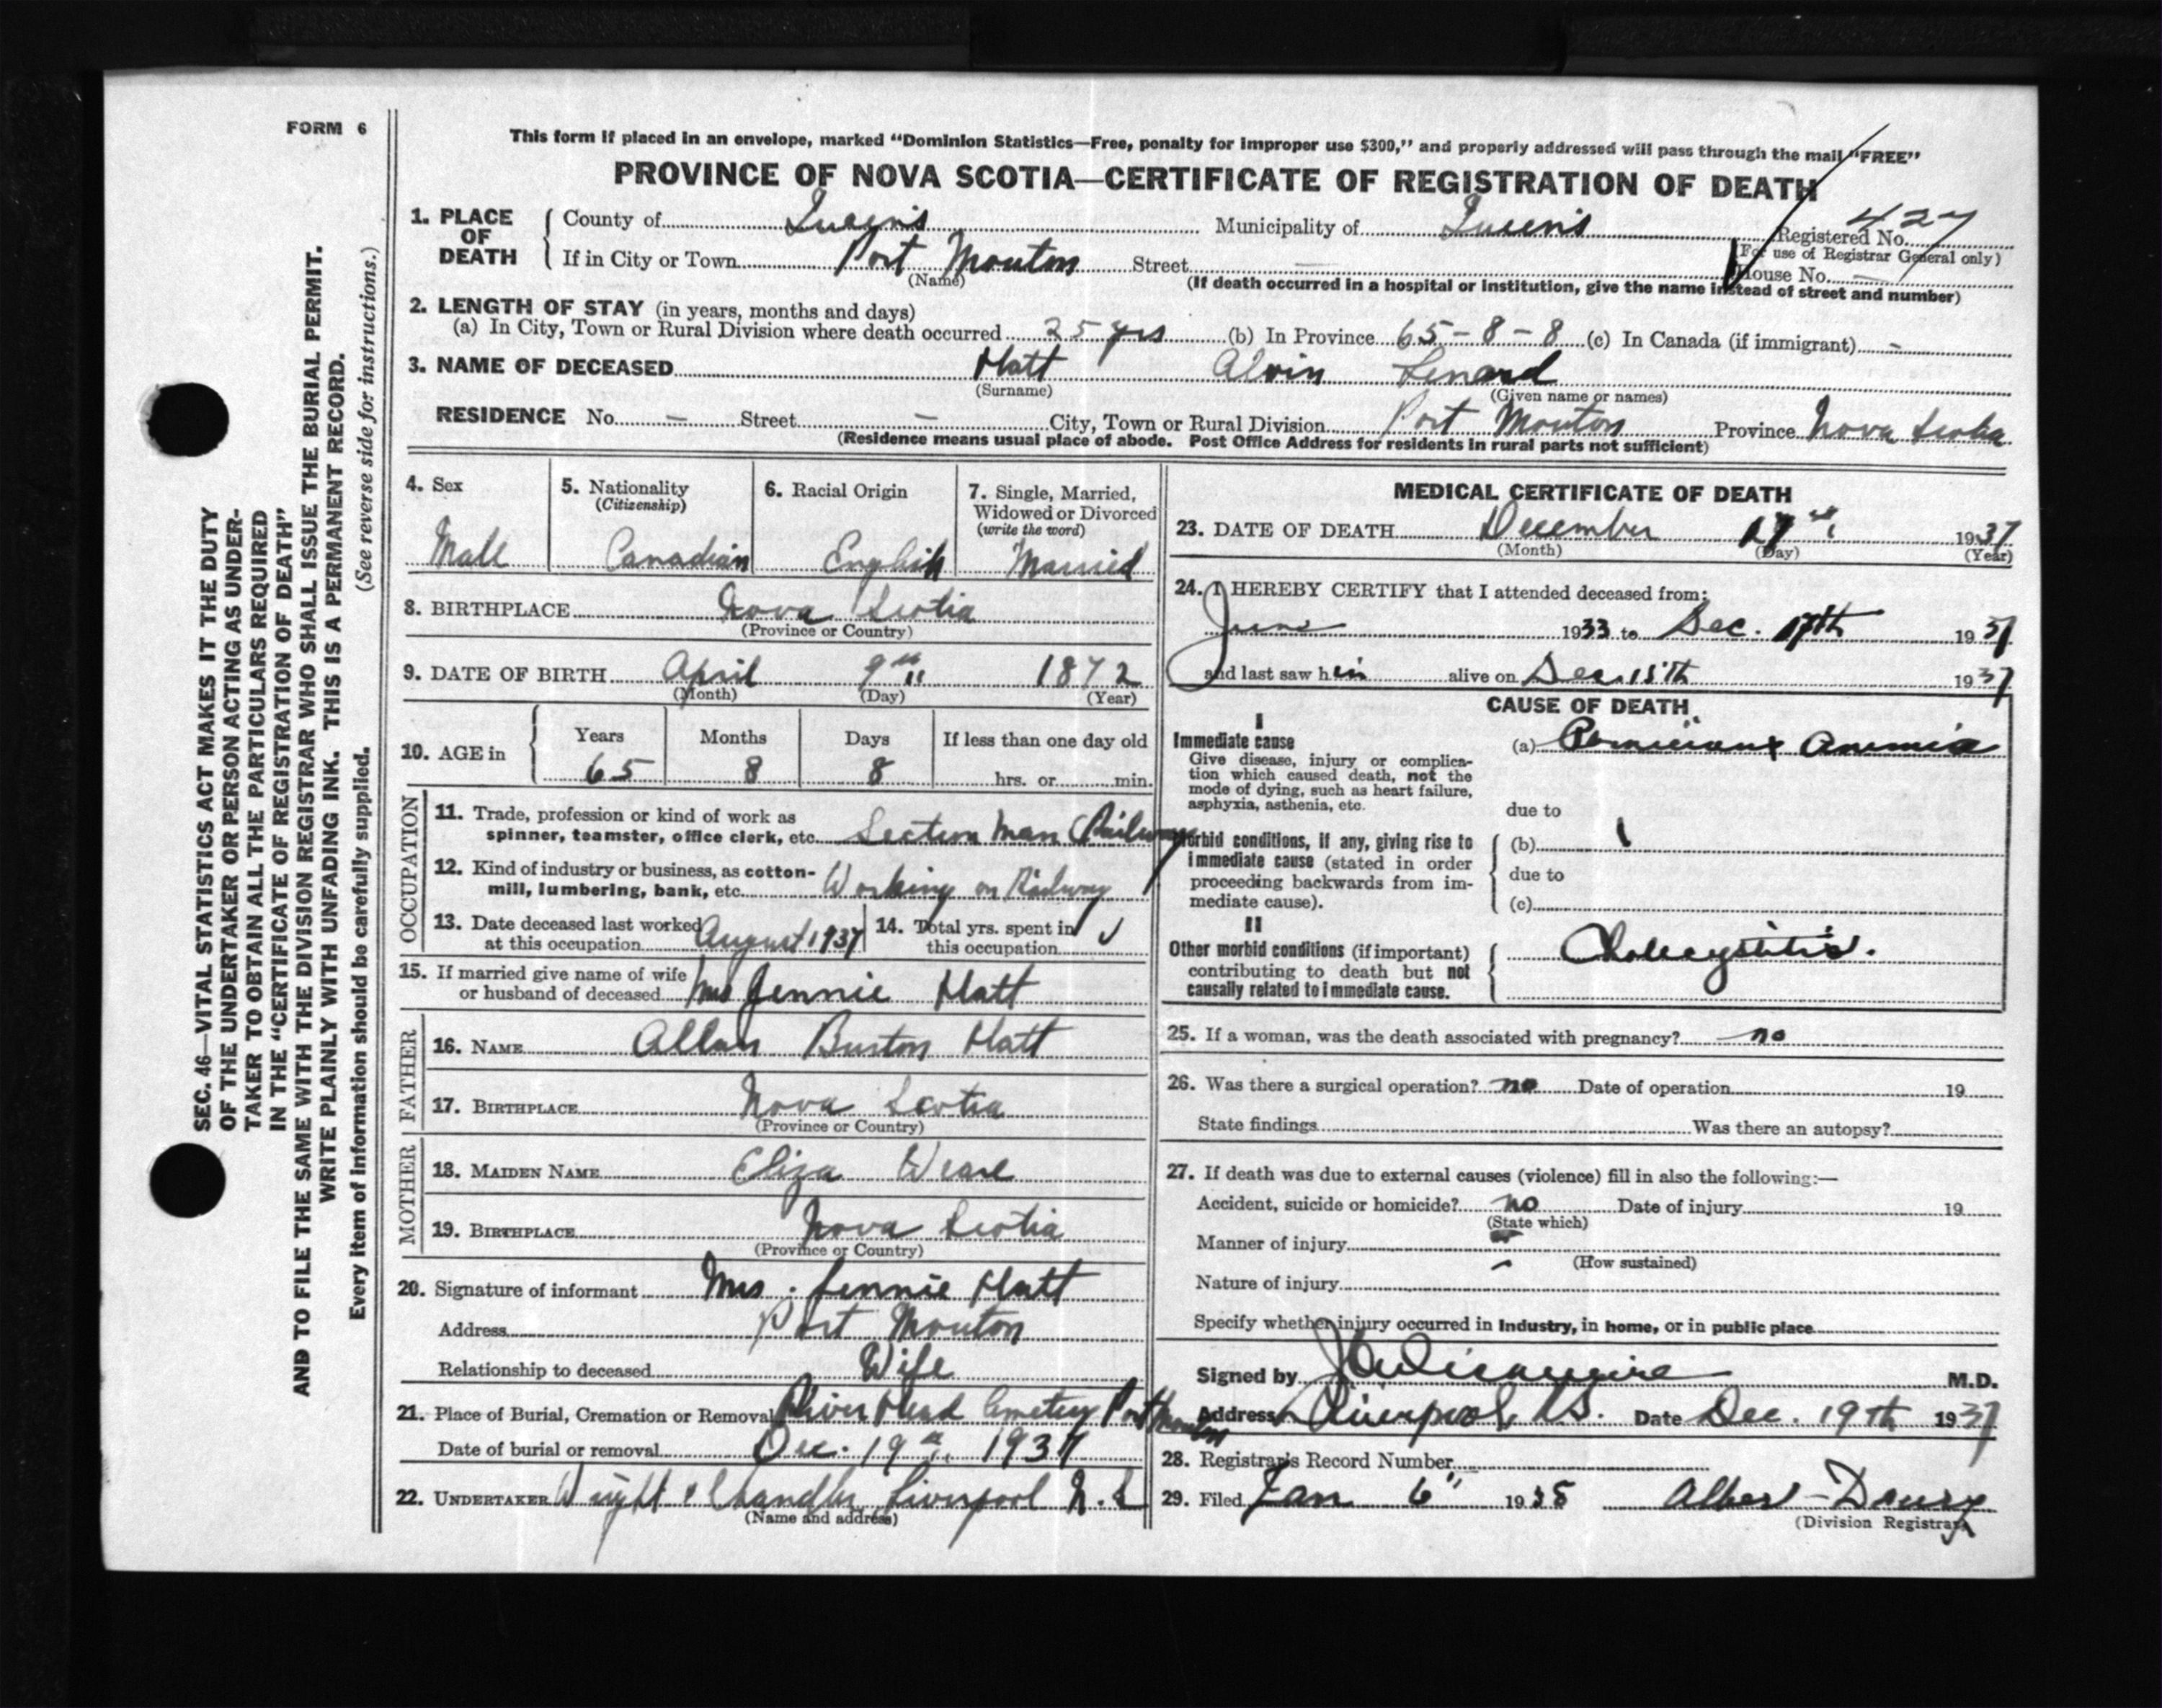 FORM 6
This form if placed in an envelope, marked "Dominion Statistics—Free, penalty for improper use $300," and properly addressed will pass through the mail "FREE"
PROVINCE OF NOVA SCOTIA—CERTIFICATE OF REGISTRATION OF DEATH
SEC. 46—VITAL STATISTICS ACT MAKES IT THE DUTY
OF THE UNDERTAKER OR PERSON ACTING AS UNDER-
TAKER TO OBTAIN ALL THE PARTICULARS REQUIRED
IN THE "CERTIFICATE OF REGISTRATION OF DEATH"
AND TO FILE THE SAME WITH THE DIVISION REGISTRAR WHO SHALL ISSUE THE BURIAL PERMIT.
WRITE PLAINLY WITH UNFADING INK. THIS IS A PERMANENT RECORD.
Every item of information should be carefully supplied. (See reverse side for instructions.)
1. PLACE OF DEATH
County of Queens Municipality of Queens Registered No. 427
(For use of Registrar General only)
If in City or Town Port Mouton Street — House No. —
(Name) (If death occurred in a hospital or institution, give the name instead of street and number)
2. LENGTH OF STAY (in years, months and days)
(a) In City, Town or Rural Division where death occurred 25 yrs (b) In Province 65-8-8 (c) In Canada (if immigrant) -
3. NAME OF DECEASED Hatt Alvin Lenard
(Surname) (Given name or names)
RESIDENCE No. — Street — City, Town or Rural Division Port Mouton Province Nova Scotia
(Residence means usual place of abode. Post Office Address for residents in rural parts not sufficient)
4. Sex Male
5. Nationality (Citizenship) Canadian
6. Racial Origin English
7. Single, Married, Widowed or Divorced (write the word) Married
8. BIRTHPLACE Nova Scotia
(Province or Country)
9. DATE OF BIRTH April 9th 1872
(Month) (Day) (Year)
10. AGE in Years Months Days If less than one day old
65 8 8 hrs. or min.
OCCUPATION
11. Trade, profession or kind of work as
spinner, teamster, office clerk, etc. Section Man (Railway)
12. Kind of industry or business, as cotton-
mill, lumbering, bank, etc. Working on Railway
13. Date deceased last worked
at this occupation August 1937
14. Total yrs. spent in
this occupation
15. If married give name of wife
or husband of deceased Mrs Jennie Hatt
FATHER
16. NAME Allan Burton Hatt
17. BIRTHPLACE Nova Scotia
(Province or Country)
MOTHER
18. MAIDEN NAME Eliza Weare
19. BIRTHPLACE Nova Scotia
(Province or Country)
20. Signature of informant Mrs. Jennie Hatt
Address Port Mouton
Relationship to deceased Wife
21. Place of Burial, Cremation or Removal River Head Cemetery Port Mouton
Date of burial or removal Dec. 19th, 1937
22. UNDERTAKER Wright & Chandler Liverpool N.S
(Name and address)
MEDICAL CERTIFICATE OF DEATH
23. DATE OF DEATH December 17th 1937
(Month) (Day) (Year)
24. I HEREBY CERTIFY that I attended deceased from:
June 1933 to Dec. 17th 1937
and last saw him alive on Dec. 15th 1937
CAUSE OF DEATH
I
Immediate cause
Give disease, injury or complica-
tion which caused death, not the
mode of dying, such as heart failure,
asphyxia, asthenia, etc.
(a) Pernicious Anemia
due to
Morbid conditions, if any, giving rise to
immediate cause (stated in order
proceeding backwards from im-
mediate cause).
(b)
due to
(c)
II
Other morbid conditions (if important)
contributing to death but not
causally related to immediate cause.
Cholecystitis.
25. If a woman, was the death associated with pregnancy? no
26. Was there a surgical operation? no Date of operation 19
State findings Was there an autopsy?
27. If death was due to external causes (violence) fill in also the following:—
Accident, suicide or homicide? no Date of injury 19
(State which)
Manner of injury
(How sustained)
Nature of injury
Specify whether injury occurred in Industry, in home, or in public place
Signed by M.D.
Address Liverpool, N.S. Date Dec. 19th 1937
28. Registrar's Record Number
29. Filed Jan 6" 1938 Albert Daury
(Division Registrar)